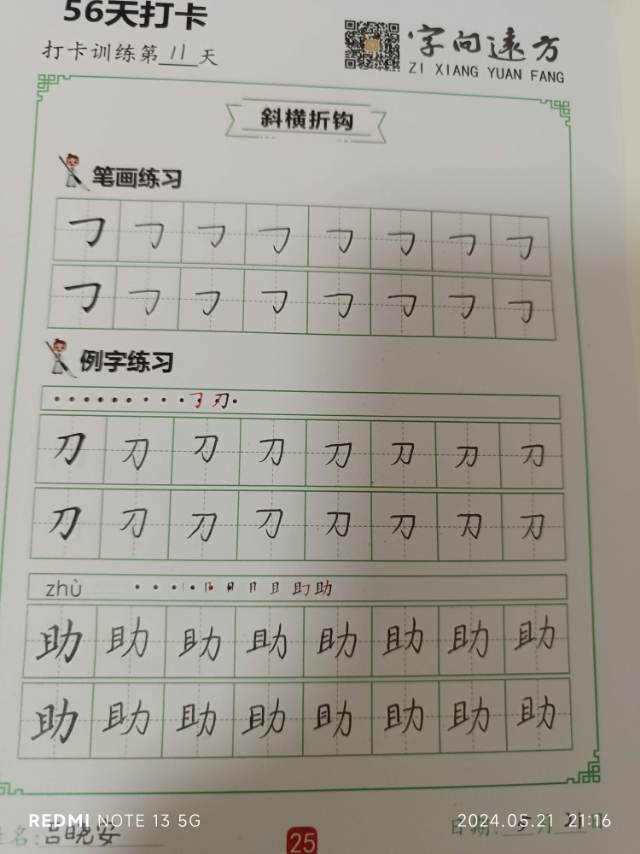 56天打卡
打卡训练第 11 天
字向远方
ZI XIANG YUAN FANG
斜横折钩
笔画练习
㇆ ㇆ ㇆ ㇆ ㇆ ㇆ ㇆ ㇆
㇆ ㇆ ㇆ ㇆ ㇆ ㇆ ㇆ ㇆
例字练习
㇆ 刀
刀 刀 刀 刀 刀 刀 刀 刀
刀 刀 刀 刀 刀 刀 刀 刀
zhù 助
助 助 助 助 助 助 助 助
助 助 助 助 助 助 助 助
REDMI NOTE 13 5G
2024.05.21 21:16
姓名: 吕晓安
日期: 5 月 21 日
25